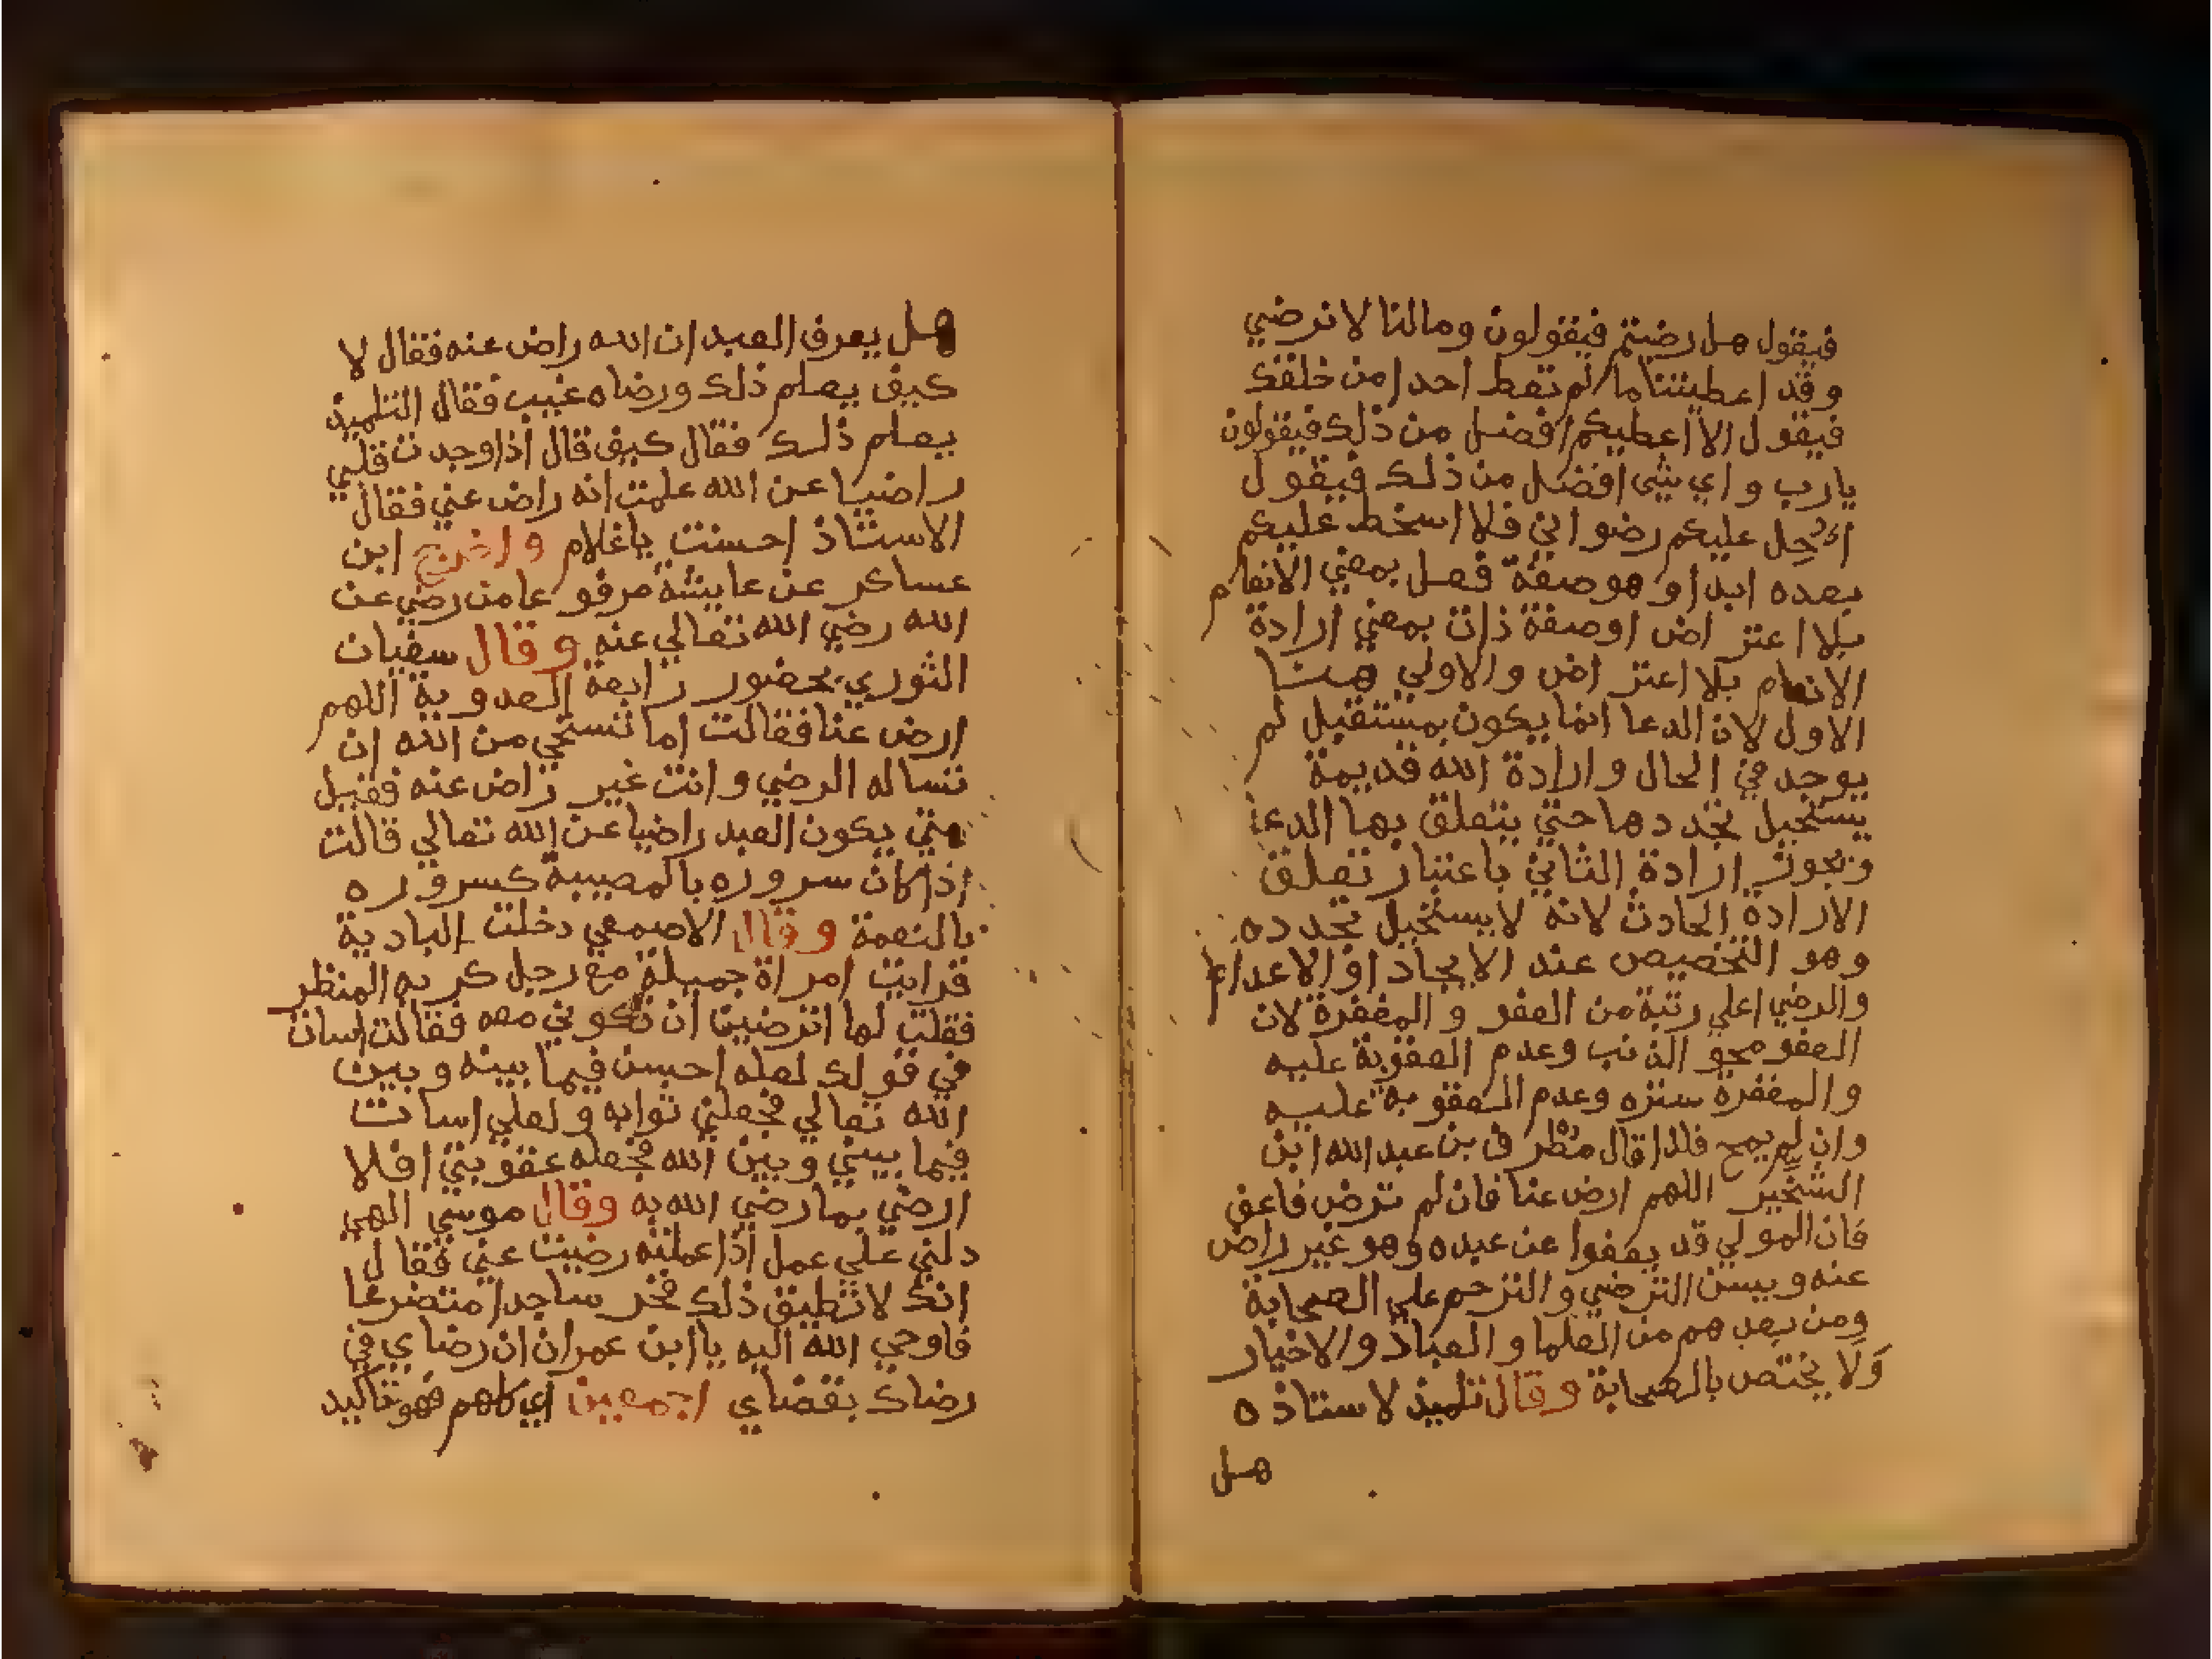 فيقول هل رضيتم فيقولون ومالنا لا نرضي
وقد اعطيتنا ما لم تعط احدا من خلقك
فيقول الا اعطيكم افضل من ذلك فيقولون
يارب واي شي افضل من ذلك فيقول
احل عليكم رضواني فلا اسخط عليكم
بعده ابدا وهو صفة فعل بمعني الانعام
بلا اعتراض او صفة ذات بمعني ارادة
الانعام بلا اعتراض والاولي هنا
الاول لان الدعا انما يكون بمستقبل لم
يوجد في الحال وارادة الله قديمة
يستحيل تجددها حتي يتعلق بها الدعا
ويجوز ارادة الثاني باعتبار تعلق
الارادة الحادث لانه لا يستحيل تجدده
وهو التخصيص عند الايجاد او الاعدام
والرضي اعلي رتبة من العفو والمغفرة لان
العفو محو الذنب وعدم العقوبة عليه
والمغفرة ستره وعدم العقوبة عليه
وان لم يمح فلذا قال مطرف بن عبد الله ابن
الشخير اللهم ارض عنا فان لم ترض فاعف
فان المولي قد يعفوا عن عبده وهو غير راض
عنه ويسن الترضي والترحم علي الصحابة
ومن بعدهم من العلما والعباد والاخيار
ولا يختص بالصحابة وقال تلميذ لاستاذه
هل
هل يعرف العبد ان الله راض عنه فقال لا
كيف يعلم ذلك ورضاه غيب فقال التلميذ
يعلم ذلك فقال كيف قال اذا وجدت قلبي
راضيا عن الله علمت انه راض عني فقال
الاستاذ احسنت ياغلام واخرج ابن
عساكر عن عايشة مرفوعا من رضي عن
الله رضي الله تعالي عنه وقال سفيان
الثوري بحضور رابعة العدوية اللهم
ارض عنا فقالت اما تستحي من الله ان
تساله الرضي وانت غير راض عنه فقيل
متي يكون العبد راضيا عن الله تعالي قالت
اذا كان سروره بالمصيبة كسروره
بالنعمة وقال الاصمعي دخلت البادية
فرايت امراة جميلة مع رجل كريه المنظر
فقلت لها اترضين ان تكوني معه فقالت اسات
في قولك لعله احسن فيما بينه وبين
الله تعالي فجعلني ثوابه ولعلي اسات
فيما بيني وبين الله فجعله عقوبتي افلا
ارضي بما رضي الله به وقال موسي الهي
دلني علي عمل اذا عملته رضيت عني فقال
انك لا تطيق ذلك فخر ساجدا متضرعا
فاوحي الله اليه ياابن عمران ان رضاي في
رضاك بقضاي اجمعين اي كلهم فهو تاكيد